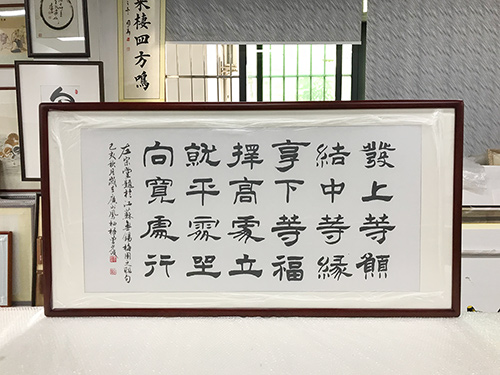 發上等願
結中等緣
享下等福
擇高處立
就平處坐
向寬處行
左宗棠題於江蘇無錫梅園之詩句
己亥秋月
棲四方鳴